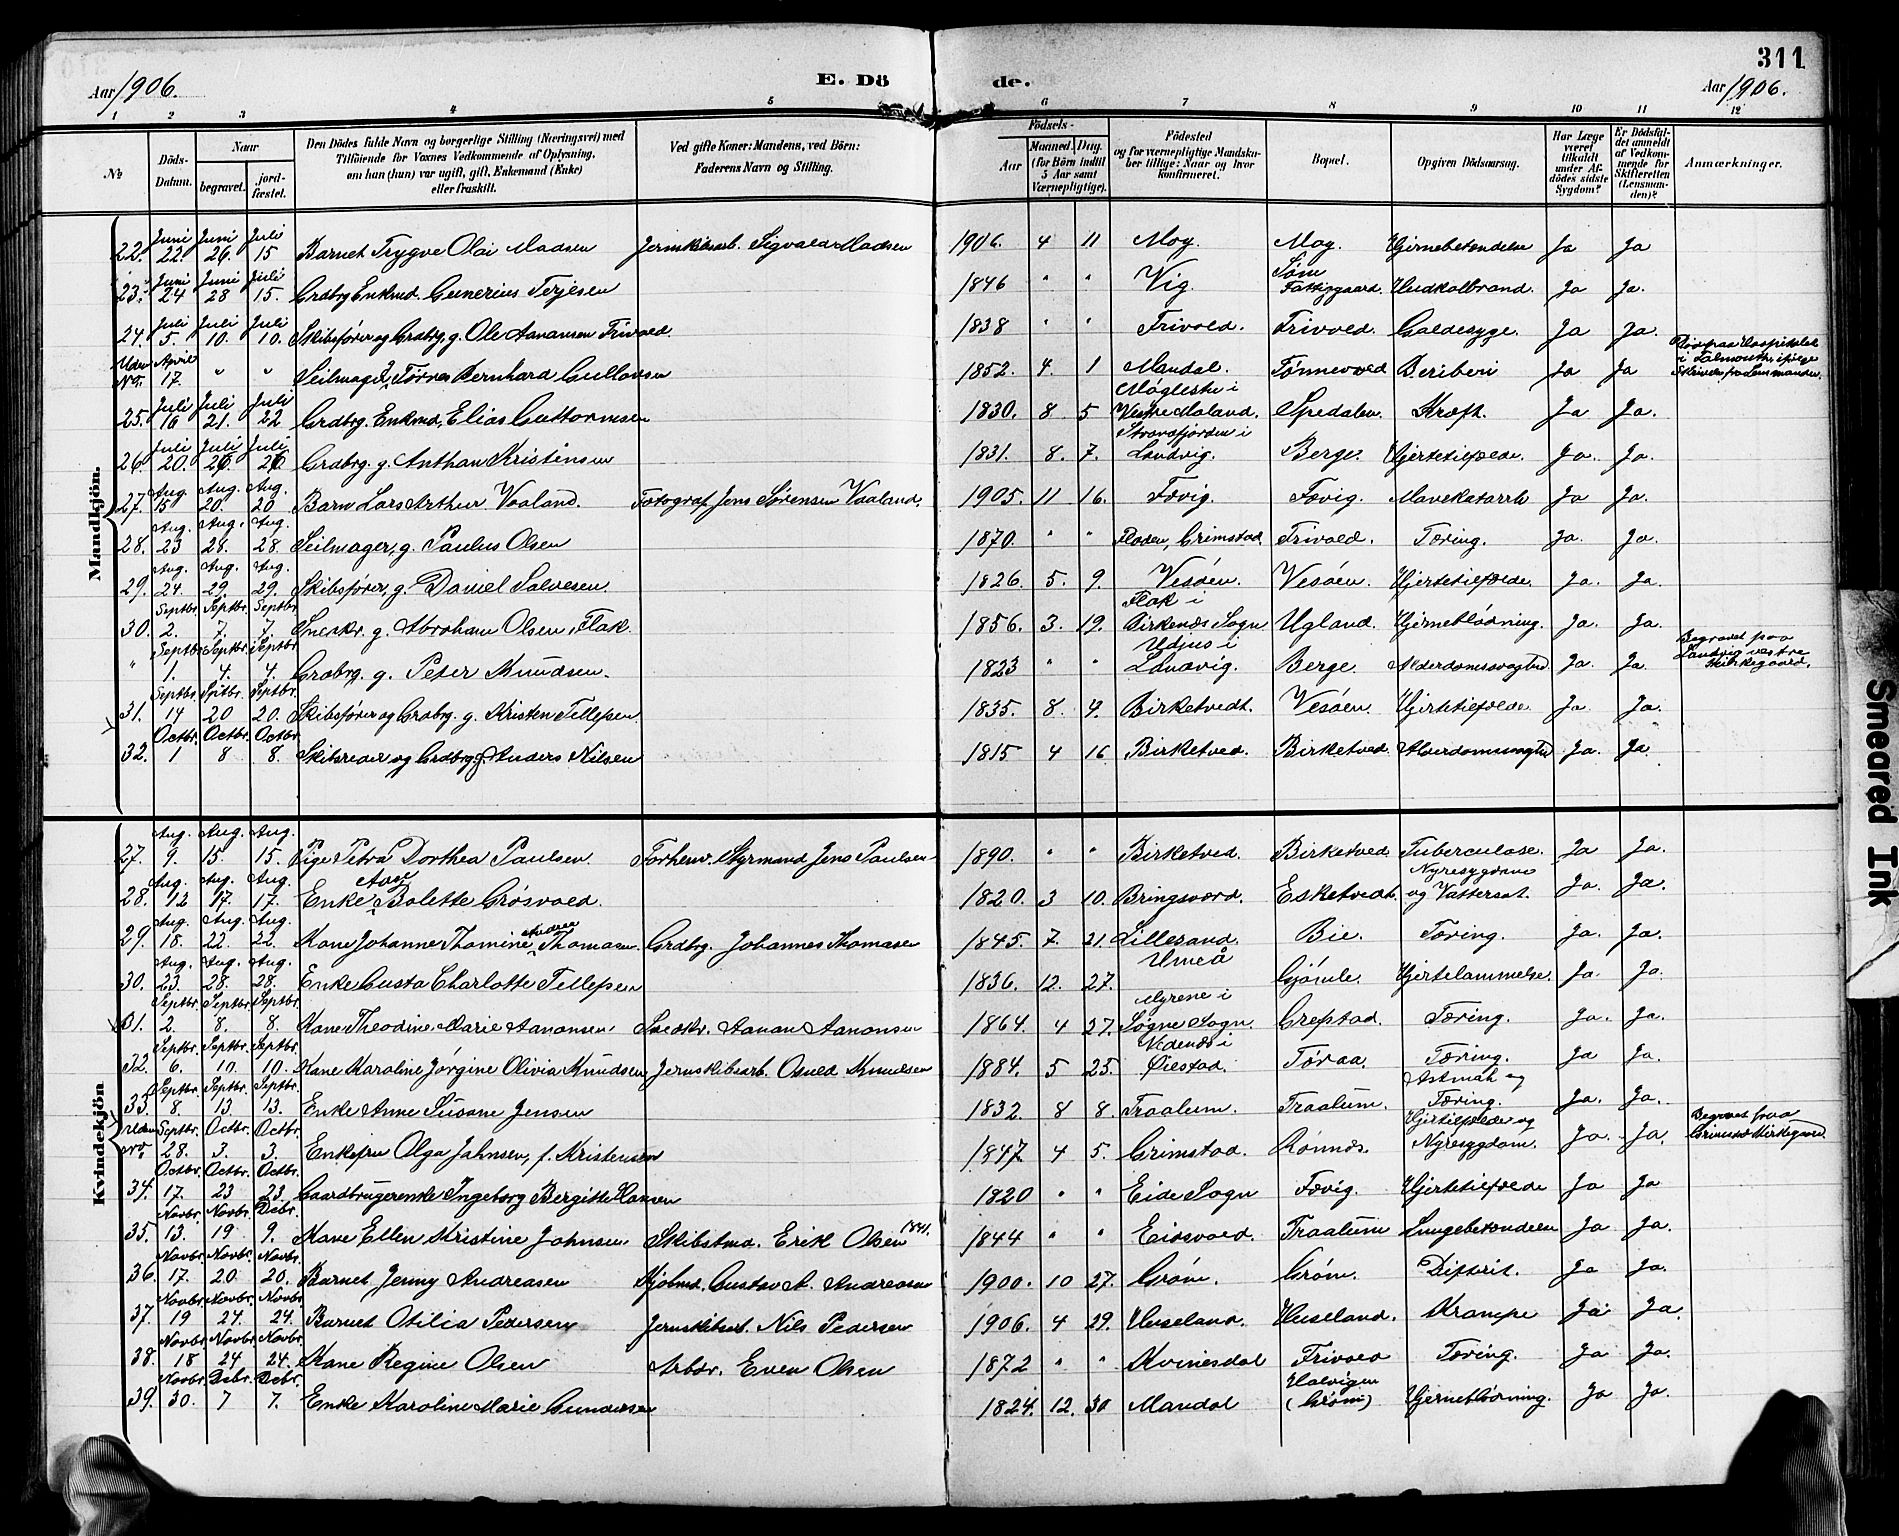 311
Aar 1906.
E. Dö
de.
Aar 1906.
1 2 3 4 5 6 7 8 9 10 11 12
No
Döds-Datum.
Naar
begravet.
jordfæstet.
Den Dödes fulde Navn og borgerlige Stilling (Næringsvei) med
Tilföiende for Voxnes Vedkommende af Oplysning,
om han (hun) var ugift, gift, Enkemand (Enke)
eller fraskilt.
Ved gifte Koner: Mandens, ved Börn:
Faderens Navn og Stilling.
Födsels-
Aar
Maaned. Dag.
(for Börn indtil
5 Aar samt
Værnepligtige).
Födested
og for værnepligtige Mandskaber tillige: Naar og hvor
konfirmeret.
Bopæl.
Opgiven Dödsaarsag.
Har Læge
været
tilkaldt
under Afdödes sidste
Sygdom?
Er Dödsfaldet anmeldt
af Vedkommende for
Skifteretten
(Lensmanden)?
Anmærkninger.
Mandkjön.
22. Juni 22. Juni 26. Juli 15 Barnet Trygve Olai Madsen Jernskibsarb. Sigvald Madsen 1906. 4 11 Moy. Moy. Hjernebetændelse Ja Ja
23. Juni 24 Juni 28 Juli 15. Grdbrg Enkmd. Gunerius Terjesen 1846 " " Vig. Søm Fattiggaard. Hudkolbrand. Ja Ja.
24. Juli 5. Juli 10. Juli 10. Skibsfører og Grdbrg. g. Ole Aanansen Frivold. 1838 " " Frivold. Frivold. Galdesyge. Ja Ja.
Uden No. April 17. " " Seilmager, Tørres Bernhard Gullovsen 1852. 4. 1 Mandal. Tønnevold Beriberi Ja Ja Død paa Hospitalet i Falmouth, ifølge Skrivelse fra Lensmanden.
25. Juli 16 Juli 21. Juli 22 Grdbrg. Enkmd, Elias Guttormsen 1830. 8 5 Møglestu i Vestre Moland. Spedalen. Kræft. Ja Ja.
26. Juli 20. Juli 26 Juli 26 Grdbrg. g. Anthon Kristensen 1831. 8. 7. Strandfjorden i Landvig. Berge. Hjertetilfælde. Ja. Ja.
27. Aug. 15 Aug. 20. Aug. 20 Barn Lars Arthur Vaaland. Fotograf Jens Sørensen Vaaland. 1905. 11 16. Fævig. Fævig. Mavekatarrh Ja Ja.
28. Aug. 23 Aug. 28. Aug. 28. Seilmager, g. Paulus Olsen 1870. " " Floden, Grimstad Frivold. Tæring. Ja. Ja.
29. Aug. 24. Aug. 29. Aug. 29. Skibsfører, g. Daniel Salvesen. 1826. 5. 9. Vesøen. Vesøen. Hjertetilfælde. Ja. Ja.
30. Septbr. 2. Septbr. 7. Septbr. 7. Snedkr. g. Abraham Olsen Flak. 1856. 3. 19. Flak i Birkenæs Sogn Ugland. Hjerneblødning. Ja. Ja.
" Septbr. 1. Septbr. 4. Septbr. 4. Grdbrg. g. Peter Knudsen. 1823 " " Udjus i Landvig. Berge. Alderdomssvaghed Ja. Ja. Begravet paa Landvig vestre Kirkegaard.
31. Septbr. 14 Septbr. 20 Septbr. 20. Skibsfører og Grdbrg. g. Kristen Tellefsen 1835. 8. 4. Birketvedt. Vesøen. Hjertetilfælde Ja. Ja.
32. Octbr. 1 Octbr. 8 Octbr. 8. Skibsreder og Grdbrg. g. Anders Nilsen 1815 4 16 Birketved. Birketved. Alderdomssvaghed Ja. Ja.
Kvindekjön
27. Aug. 9. Aug. 15. Aug. 15. Pige Petra Dorthea Paulsen Forhenv. Styrmand Jens Paulsen 1890. " " Birketved. Birketved Tuberculose. Ja Ja.
28. Aug. 12 Aug. 17. Aug. 17. Enke Aase Bolette Grøsvold. 1820. 3 10. Bringsværd. Esketvedt. Nyresygdom og Vattersot. Ja. Ja.
29. Aug. 18. Aug. 22. Aug. 22. Kone Johanne Thomine Andrea Thomasen. Grdbrg. Johannes Thomasen 1845. 7. 21. Lillesand. Bie. Tæring. Ja. Ja.
30. Aug. 23. Aug. 28. Aug. 28. Enke Gusta Charlotte Tellefsen 1836. 12. 27. Umeå Gjömle. Hjertelammelse. Ja. Ja.
31. Septbr. 2. Septbr. 8. Septbr. 8. Kone Theodine Marie Aanonsen. Snedkr. Aanon Aanonsen 1864. 4 27. Myrene i Søgne Sogn. Grefstad. Tæring. Ja. Ja.
32. Septbr. 6. Septbr. 10. Septbr. 10. Kone Karoline Jørgine Olivia Knudsen Jernskibsarb. Osvald Knudsen 1884. 5 25. Nedenæs i Øiestad. Toraa. Tæring. Ja Ja.
33. Septbr. 8. Septbr. 13. Septbr. 13. Enke Anne Susane Jensen 1832. 8 8. Traalum. Traalum. Astmah og Tæring. Ja. Ja.
Uden No Septbr. 28. Octbr. 3. Octbr. 3. Enkefru Olga Jahnsen, f. Kristensen 1847 4 5. Grimstad. Rønnæs. Hjertetilfælde og Nyresygdom. Ja. Ja. Begravet paa Grimstad Kirkegaard.
34. Octbr. 17. Octbr. 23 Octbr. 23. Gaardbrugerenke Ingeborg Bergitte Hansen 1820 " " Eide Sogn Fævig. Hjertetilfælde Ja Ja
35. Novbr. 13. Novbr. 19 Decbr. 9. Kone Ellen Kristine Johnsen. Skibstmd. Erik Olsen 1841. 1844 " " Eidsvold. Traalum Lungebetændelse Ja Ja.
36. Novbr. 17. Novbr. 20. Novbr. 20. Barnet Jenny Andreasen Kjølmd. Gustav A. Andreasen 1900. 10 27. Grøm. Grøm. Difterit. Ja Ja.
37. Novbr. 19 Novbr. 24. Novbr. 24. Barnet Otilia Pedersen Jernskibsarb. Nils Pedersen 1906. 4 29. Huseland. Huseland. Krampe Ja. Ja.
38. Novbr. 18 Novbr. 24 Novbr. 24. Kone Regine Olsen Arbdr. Even Olsen 1872 " " Kvinesdal Frivold Tæring. Ja Ja.
39. Novbr. 30. Decbr. 7 Decbr. 7. Enke Karoline Marie Gundersen 1824. 12. 30 Mandal Halvigen (Grøm) Hjerneblødning. Ja Ja.
Smeared Ink